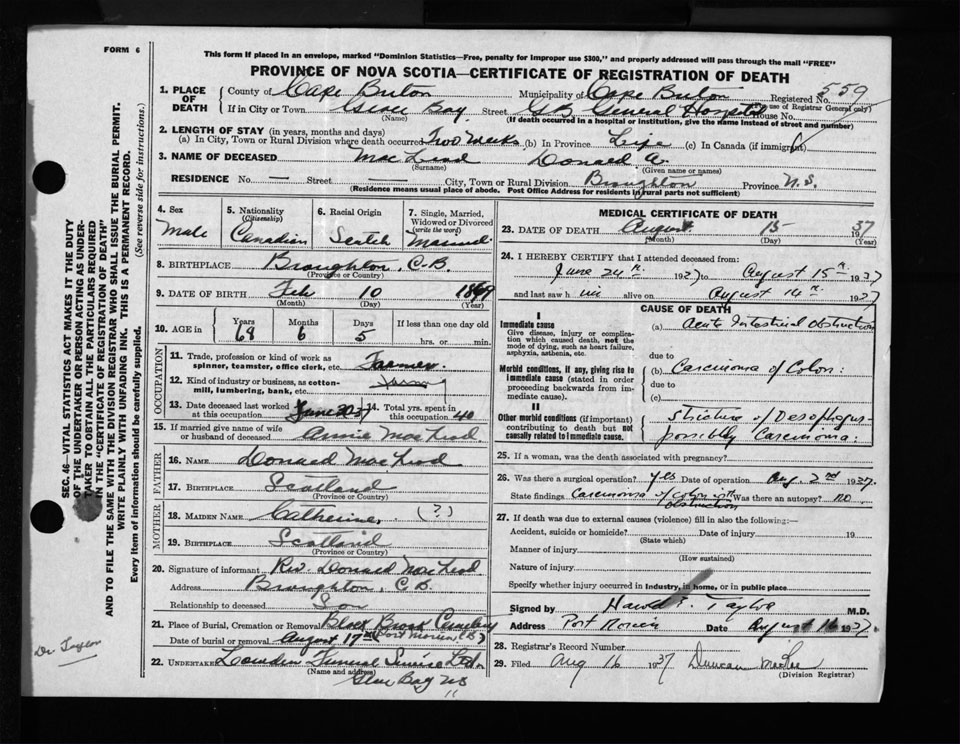 FORM 6
This form if placed in an envelope, marked "Dominion Statistics—Free, penalty for improper use $300," and properly addressed will pass through the mail "FREE"
PROVINCE OF NOVA SCOTIA—CERTIFICATE OF REGISTRATION OF DEATH
1. PLACE OF DEATH
County of Cape Breton Municipality of Cape Breton Registered No. 559
(For use of Registrar General only)
If in City or Town Glace Bay Street G.B. General Hospital House No.
(Name) (If death occurred in a hospital or institution, give the name instead of street and number)
2. LENGTH OF STAY (in years, months and days)
(a) In City, Town or Rural Division where death occurred Two Weeks (b) In Province Life (c) In Canada (if immigrant)
3. NAME OF DECEASED MacLeod Donald A.
(Surname) (Given name or names)
RESIDENCE No. — Street — City, Town or Rural Division Broughton Province N.S.
(Residence means usual place of abode. Post Office Address for residents in rural parts not sufficient)
4. Sex
Male
5. Nationality
(Citizenship)
Canadian
6. Racial Origin
Scotch
7. Single, Married, Widowed or Divorced
(write the word)
Married
8. BIRTHPLACE Broughton, C.B.
(Province or Country)
9. DATE OF BIRTH Feb 10 1869
(Month) (Day) (Year)
10. AGE in Years 68 Months 6 Days 5 If less than one day old
hrs. or min.
OCCUPATION
11. Trade, profession or kind of work as spinner, teamster, office clerk, etc. Farmer
12. Kind of industry or business, as cotton-mill, lumbering, bank, etc.
13. Date deceased last worked at this occupation June 30 37 14. Total yrs. spent in this occupation 40
15. If married give name of wife or husband of deceased Annie MacLeod
FATHER
16. NAME Donald MacLeod
17. BIRTHPLACE Scotland
(Province or Country)
MOTHER
18. MAIDEN NAME Catherine (?)
19. BIRTHPLACE Scotland
(Province or Country)
20. Signature of informant Rev. Donald MacLeod
Address Broughton, C.B.
Relationship to deceased Son
21. Place of Burial, Cremation or Removal Black Brook Cemetery
Date of burial or removal August 17th (Port Morien, C.B.)
22. UNDERTAKER Lowden Funeral Service Ltd.
(Name and address)
Glace Bay NS
MEDICAL CERTIFICATE OF DEATH
23. DATE OF DEATH August 15 1937
(Month) (Day) (Year)
24. I HEREBY CERTIFY that I attended deceased from:
June 24th 1937 to August 15th 1937
and last saw him alive on August 14th 1937
CAUSE OF DEATH
I
Immediate cause
Give disease, injury or complication which caused death, not the mode of dying, such as heart failure, asphyxia, asthenia, etc.
(a) Acute Intestinal Obstruction
due to
Morbid conditions, if any, giving rise to immediate cause (stated in order proceeding backwards from immediate cause).
(b) Carcinoma of Colon:
due to
(c)
II
Other morbid conditions (if important) contributing to death but not causally related to immediate cause.
Stricture of Oesophagus
possibly Carcinoma:
25. If a woman, was the death associated with pregnancy?
26. Was there a surgical operation? Yes Date of operation Aug. 2nd 1937.
State findings Carcinoma of colon with obstruction Was there an autopsy? no
27. If death was due to external causes (violence) fill in also the following:—
Accident, suicide or homicide? Date of injury 19
(State which)
Manner of injury
(How sustained)
Nature of injury
Specify whether injury occurred in industry, in home, or in public place
Signed by Harold E. Taylor M.D.
Address Port Morien Date August 16 1937
28. Registrar's Record Number
29. Filed Aug 16 1937 Duncan MacRae
(Division Registrar)
SEC. 46—VITAL STATISTICS ACT MAKES IT THE DUTY OF THE UNDERTAKER OR PERSON ACTING AS UNDERTAKER TO OBTAIN ALL THE PARTICULARS REQUIRED IN THE "CERTIFICATE OF REGISTRATION OF DEATH" AND TO FILE THE SAME WITH THE DIVISION REGISTRAR WHO SHALL ISSUE THE BURIAL PERMIT.
WRITE PLAINLY WITH UNFADING INK. THIS IS A PERMANENT RECORD.
Every item of information should be carefully supplied. (See reverse side for instructions.)
Dr Taylor